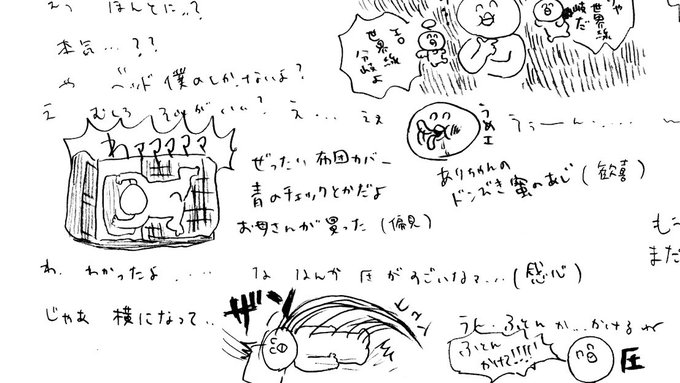 えっ ほんとに??
本気…??
や ベッド僕のしかないよ?
え むしろ それがいい? え… ええ
エロ世界線分岐よ
世界線だ
うめェ
うぅーん……
わァァァァァ
ぜったい布団カバー
青のチェックとかだよ
お母さんが買った(偏見)
ありちゃんの
ドンびき蜜のあじ(歓喜)
もう
まだ
わ、わかったよ……
な なんか 圧がすごいなァ…(感心)
じゃあ 横になって..
ふとんか…かけるね
ふとんかけて!!!!
圧